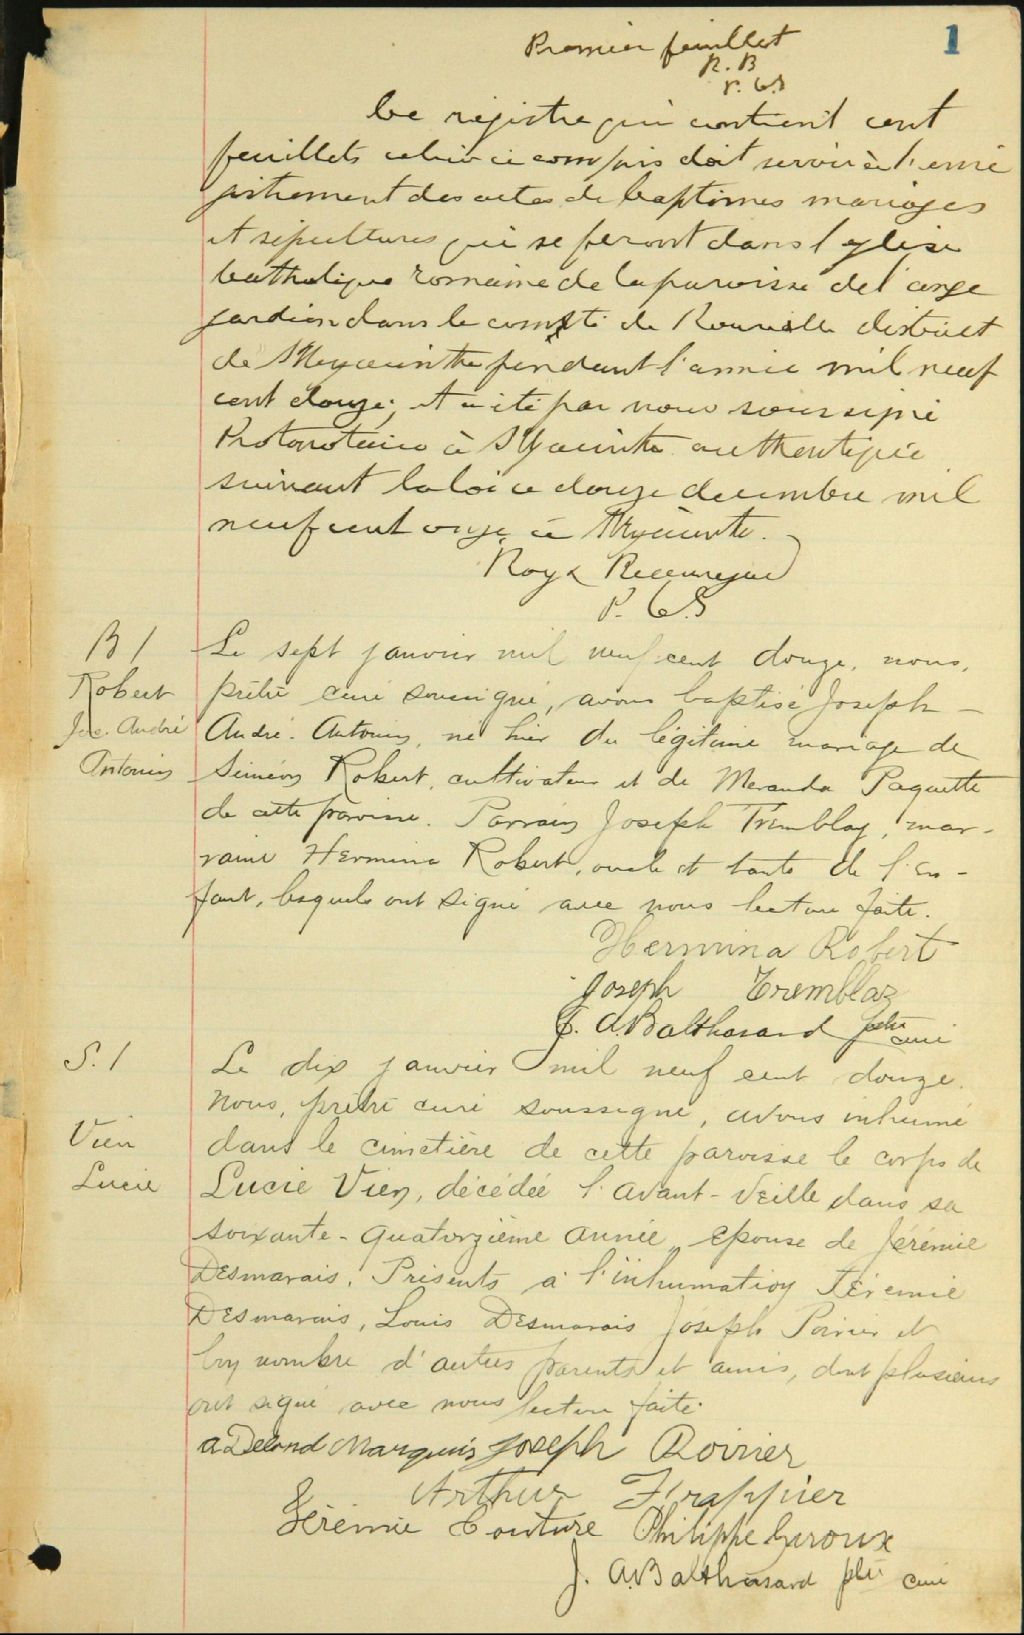 Premier feuillet
1
R. B
P. C. S
Ce registre qui contient cent
feuillets celui ci compris doit servir à l'enre
gistrement des actes de baptêmes mariages
et sépultures qui se feront dans l'église
Catholique romaine de la paroisse de l'ange
gardien dans le comté de Rouville district
de St Hyacinthe pendant l'année mil neuf
cent douze, et a été par nous soussigné
Protonotaire à St Hyacinthe authentiqué
suivant la loi ce douze decembre mil
neuf cent onze, à St Hyacinthe.
Roy &
P. C. S
B 1
Robert
Jos. André
Antonin
Le sept janvier mil neuf cent douze, nous,
prêtre curé soussigné, avons baptisé Joseph -
André - Antonin, né hier du légitime mariage de
Siméon Robert, cultivateur et de Meranda Paquette
de cette paroisse. Parrain Joseph Tremblay, mar-
raine Hermina Robert, oncle et tante de l'en-
fant, lesquels ont signé avec nous lecture faite.
Hermina Robert
Joseph Tremblay
J. A. Balthasard ptre curé
S. 1
Vien
Lucie
Le dix janvier mil neuf cent douze.
Nous, prêtre curé soussigné, avons inhumé
dans le cimetière de cette paroisse le corps de
Lucie Vien, décédée l'avant-veille dans sa
soixante-quatorzième année, épouse de Jérémie
Desmarais. Présents à l'inhumation Jérémie
Desmarais, Louis Desmarais Joseph Poirier et
bon nombre d'autres parents et amis, dont plusieurs
ont signé avec nous lecture faite.
Marquis Joseph Poirier
Arthur Frappier
Jérémie Couture Philippe Giroux
J. A. Balthasard ptre curé